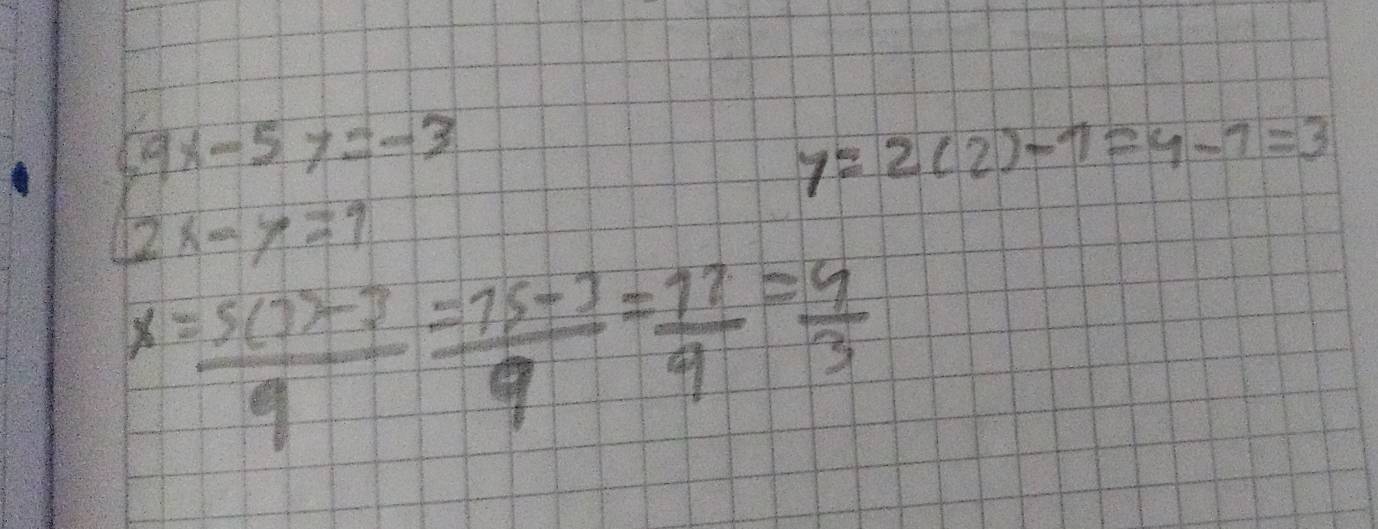 9x - 5y = -3
2x - y = 1
y = 2(2) - 1 = 4 - 1 = 3
x = \frac{5(3) - 3}{9} = \frac{15 - 3}{9} = \frac{12}{9} = \frac{4}{3}